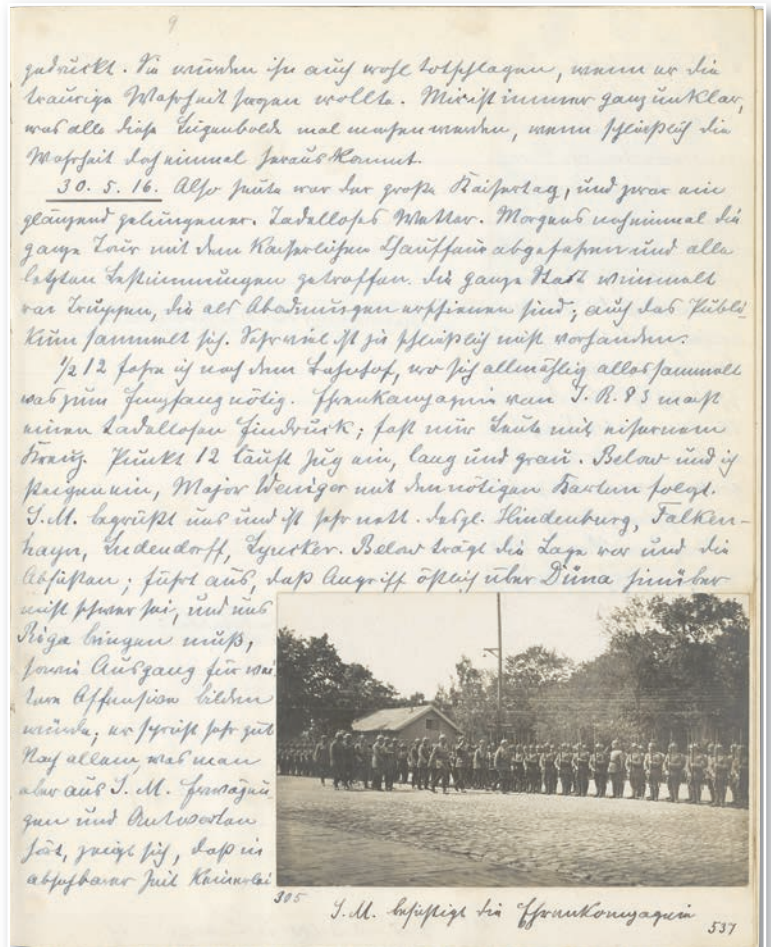 9
gedrückt. Sie würden ihn auch wohl totschlagen, wenn er die
traurige Wahrheit sagen wollte. Mir ist immer ganz unklar,
was alle diese Lügenbolde mal machen werden, wenn schließlich die
Wahrheit doch einmal herauskommt.
30. 5. 16. Also heute war der große Kaisertag, und zwar ein
glänzend gelungener. Tadelloses Wetter. Morgens noch einmal die
ganze Tour mit dem Kaiserlichen Chauffeur abgefahren und alle
letzten Bestimmungen getroffen. Die ganze Stadt wimmelt
von Truppen, die als Abordnungen erschienen sind; auch das Publi-
kum sammelt sich. Sehr viel ist ja schließlich nicht vorhanden.
1/2 12 fahre ich nach dem Bahnhof, wo sich allmählig alles sammelt
was zum Empfang nötig. Ehrenkompagnie von I. R. 83 macht
einen tadellosen Eindruck; fast nur Leute mit eisernem
Kreuz. Punkt 12 läuft Zug ein, lang und grau. Below und ich
steigen ein, Major Weniger mit den nötigen Karten folgt.
S. M. begrüßt uns und ist sehr nett. desgl. Hindenburg, Falken-
hayn, Ludendorff, Lyncker. Below trägt die Lage vor und die
Absichten; führt aus, daß Angriff östlich über Düna hinüber
nicht schwer sei, und uns
Riga bringen muß,
sowie Ausgang für wei-
tere Offensive bilden
würde; er spricht sehr gut
Nach allem, was man
aber aus S. M. Erwägun-
gen und Antworten
hört, zeigt sich, daß in
absehbarer Zeit keinerlei
305
S. M. besichtigt die Ehrenkompagnie
537